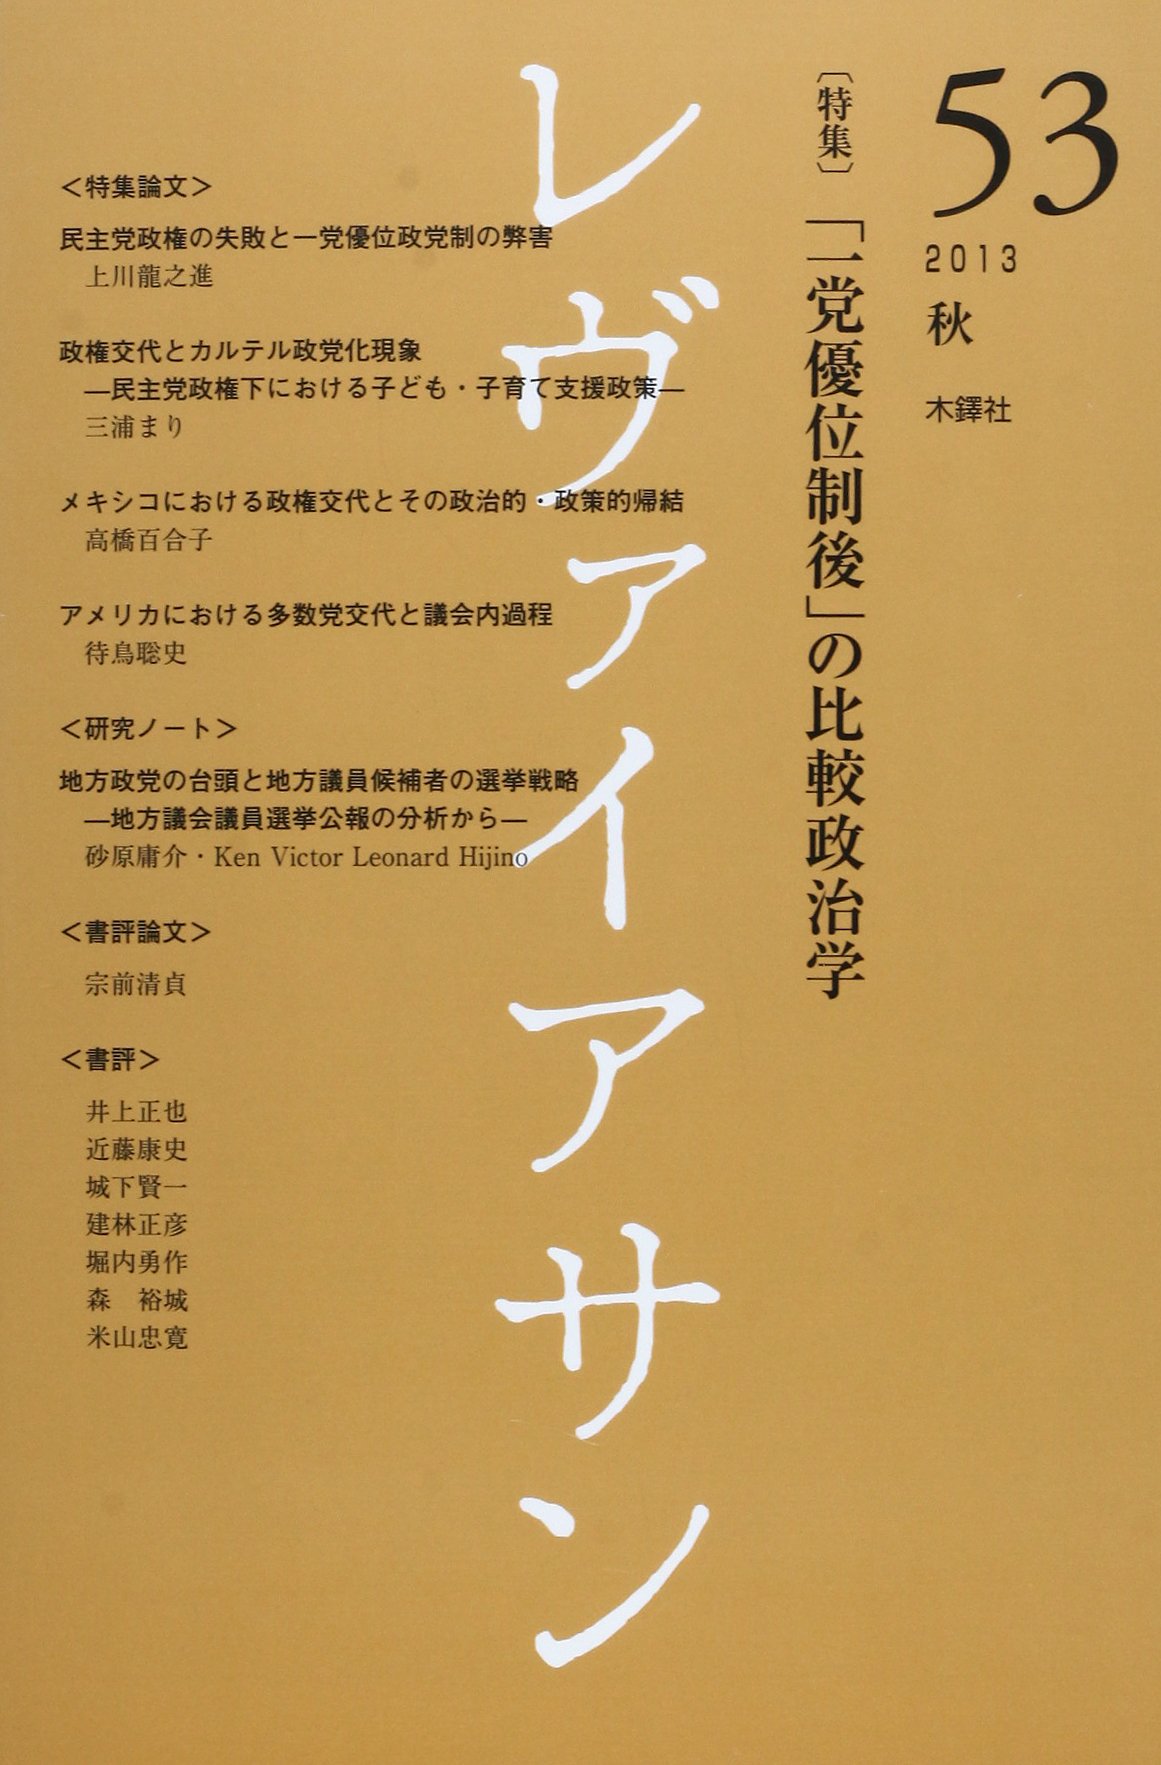 53
2013
秋
木鐸社
〔特集〕「一党優位制後」の比較政治学
レヴァイアサン
＜特集論文＞
民主党政権の失敗と一党優位政党制の弊害
上川龍之進
政権交代とカルテル政党化現象
―民主党政権下における子ども・子育て支援政策―
三浦まり
メキシコにおける政権交代とその政治的・政策的帰結
高橋百合子
アメリカにおける多数党交代と議会内過程
待鳥聡史
＜研究ノート＞
地方政党の台頭と地方議員候補者の選挙戦略
―地方議会議員選挙公報の分析から―
砂原庸介・Ken Victor Leonard Hijino
＜書評論文＞
宗前清貞
＜書評＞
井上正也
近藤康史
城下賢一
建林正彦
堀内勇作
森　裕城
米山忠寛